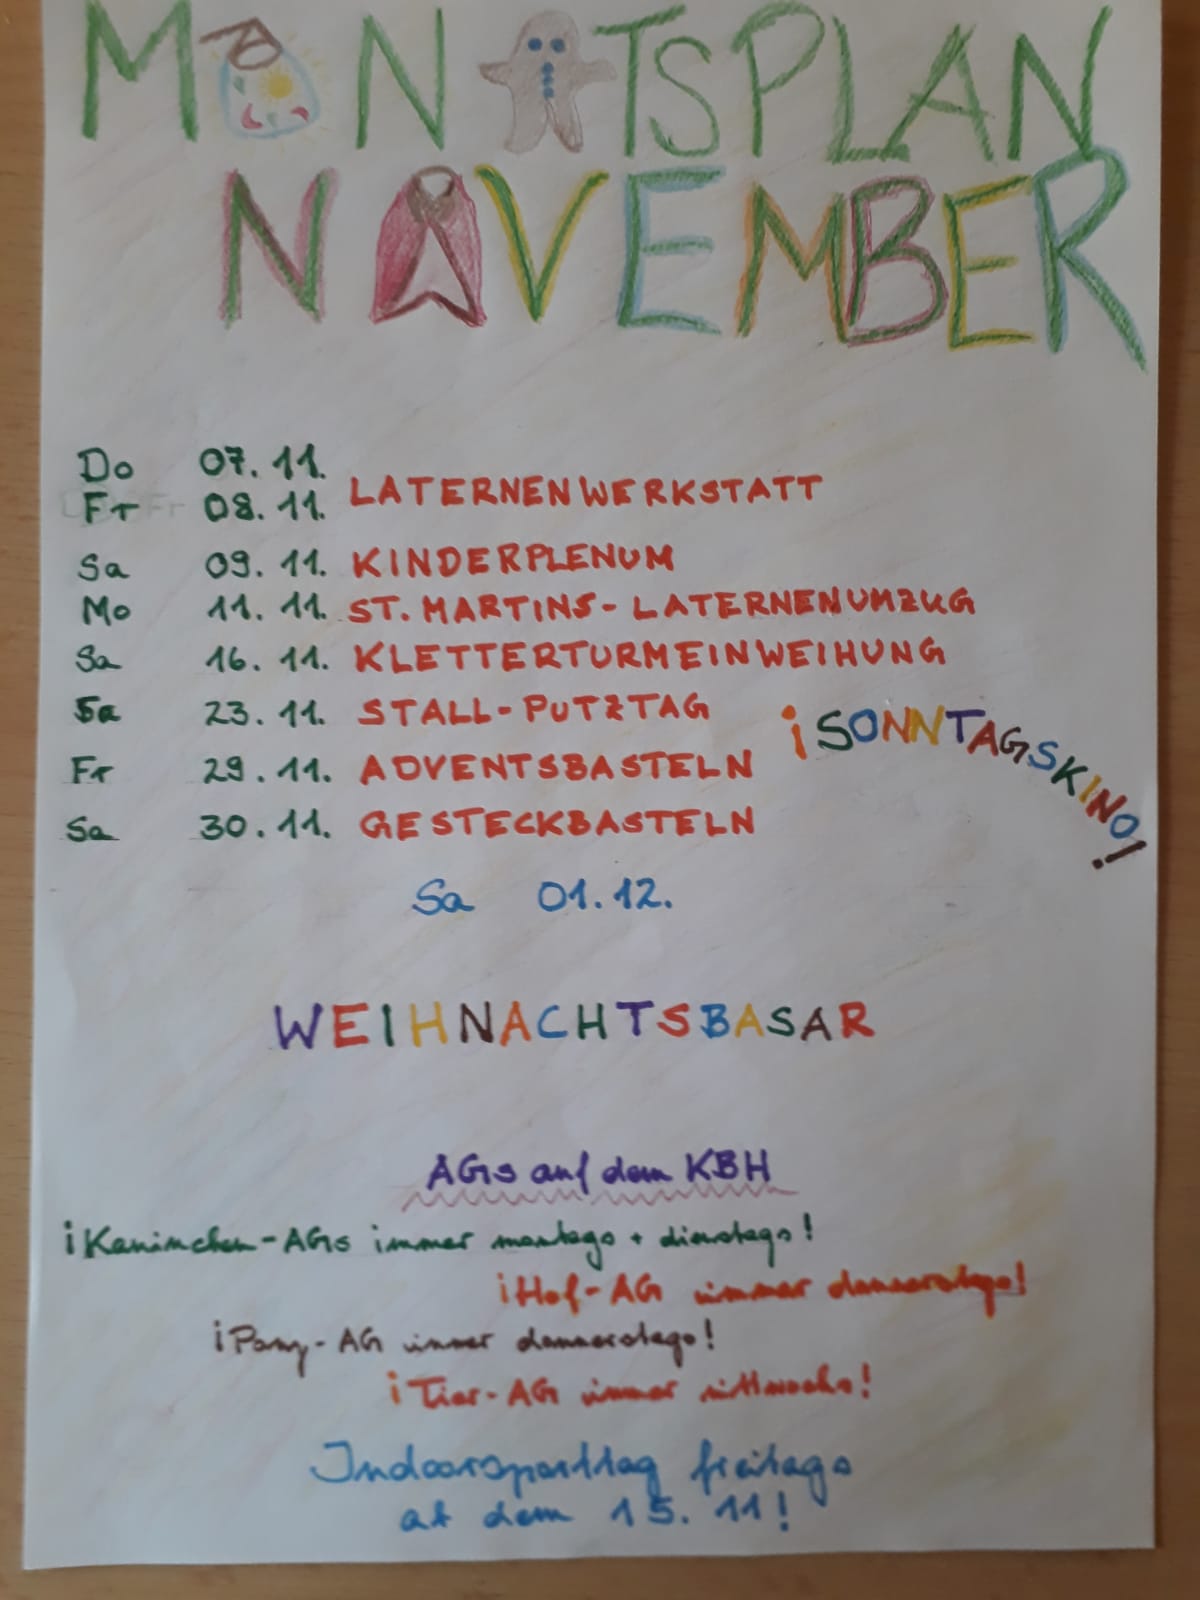 MONATSPLAN
NOVEMBER
Do 07. 11.
Fr 08. 11. LATERNENWERKSTATT
Sa 09. 11. KINDERPLENUM
Mo 11. 11. ST. MARTINS-LATERNENUMZUG
Sa 16. 11. KLETTERTURMEINWEIHUNG
Sa 23. 11. STALL-PUTZTAG
¡SONNTAGSKINO!
Fr 29. 11. ADVENTSBASTELN
Sa 30. 11. GESTECKBASTELN
Sa 01. 12.
WEIHNACHTSBASAR
AGs auf dem KBH
¡Kaninchen-AGs immer montags + dienstags!
¡Hof-AG immer donnerstags!
¡Pony-AG immer donnerstags!
¡Tier-AG immer mittwochs!
Indoorsporttag freitags
ab dem 15. 11!